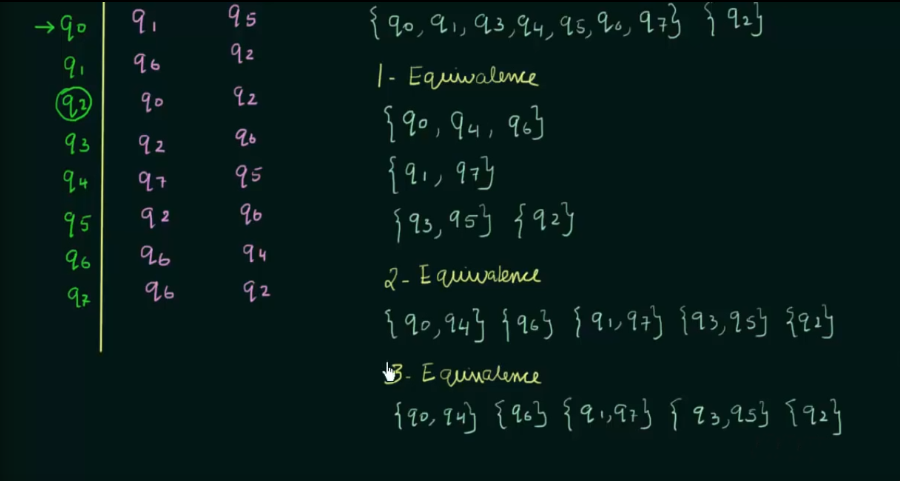 →q0 q1 q5
q1 q6 q2
q2 q0 q2
q3 q2 q6
q4 q7 q5
q5 q2 q6
q6 q6 q4
q7 q6 q2
{q0, q1, q3, q4, q5, q6, q7} {q2}
1- Equivalence
{q0, q4, q6}
{q1, q7}
{q3, q5} {q2}
2- Equivalence
{q0, q4} {q6} {q1, q7} {q3, q5} {q2}
3- Equivalence
{q0, q4} {q6} {q1, q7} {q3, q5} {q2}